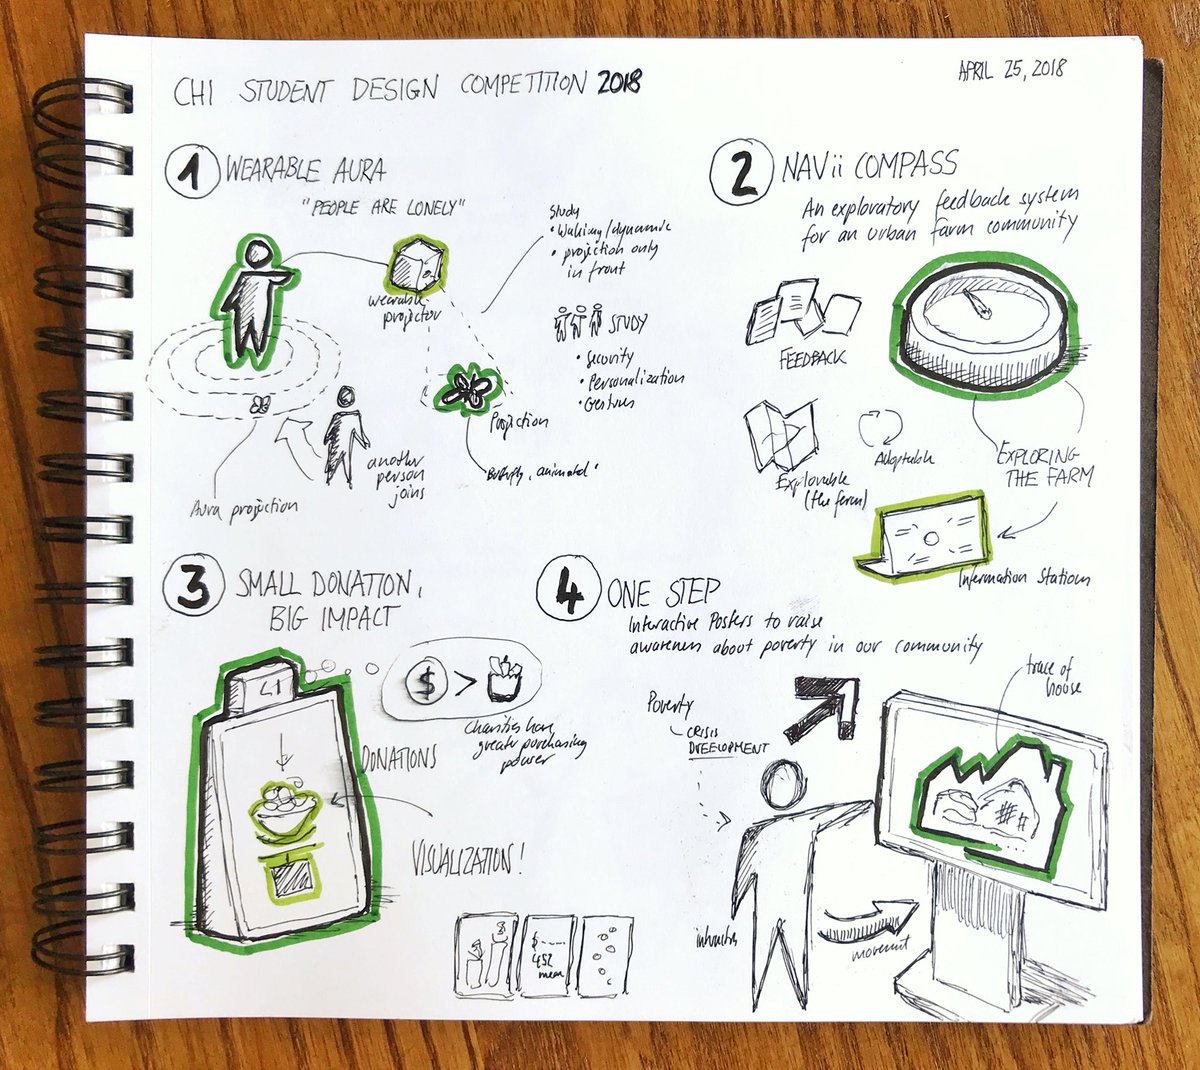 CHI STUDENT DESIGN COMPETITION 2018
APRIL 25, 2018
1 WEARABLE AURA
"PEOPLE ARE LONELY"
wearable
projector
Study
• Walking/dynamic
• projection only
in front
STUDY
• Security
• Personalization
• Gestures
Projection
Butterfly, animated
another
person
joins
Aura projection
2 NAVii COMPASS
An exploratory feedback system
for an urban farm community
FEEDBACK
Explorable
(the farm)
Adaptable
EXPLORING
THE FARM
Information Stations
3 SMALL DONATION,
BIG IMPACT
$ >
Charities have
greater purchasing
power
DONATIONS
VISUALIZATION!
$
452
mean
4 ONE STEP
Interactive Posters to raise
awareness about poverty in our community
Poverty
CRISIS
DEVELOPMENT
trace of
house
movement